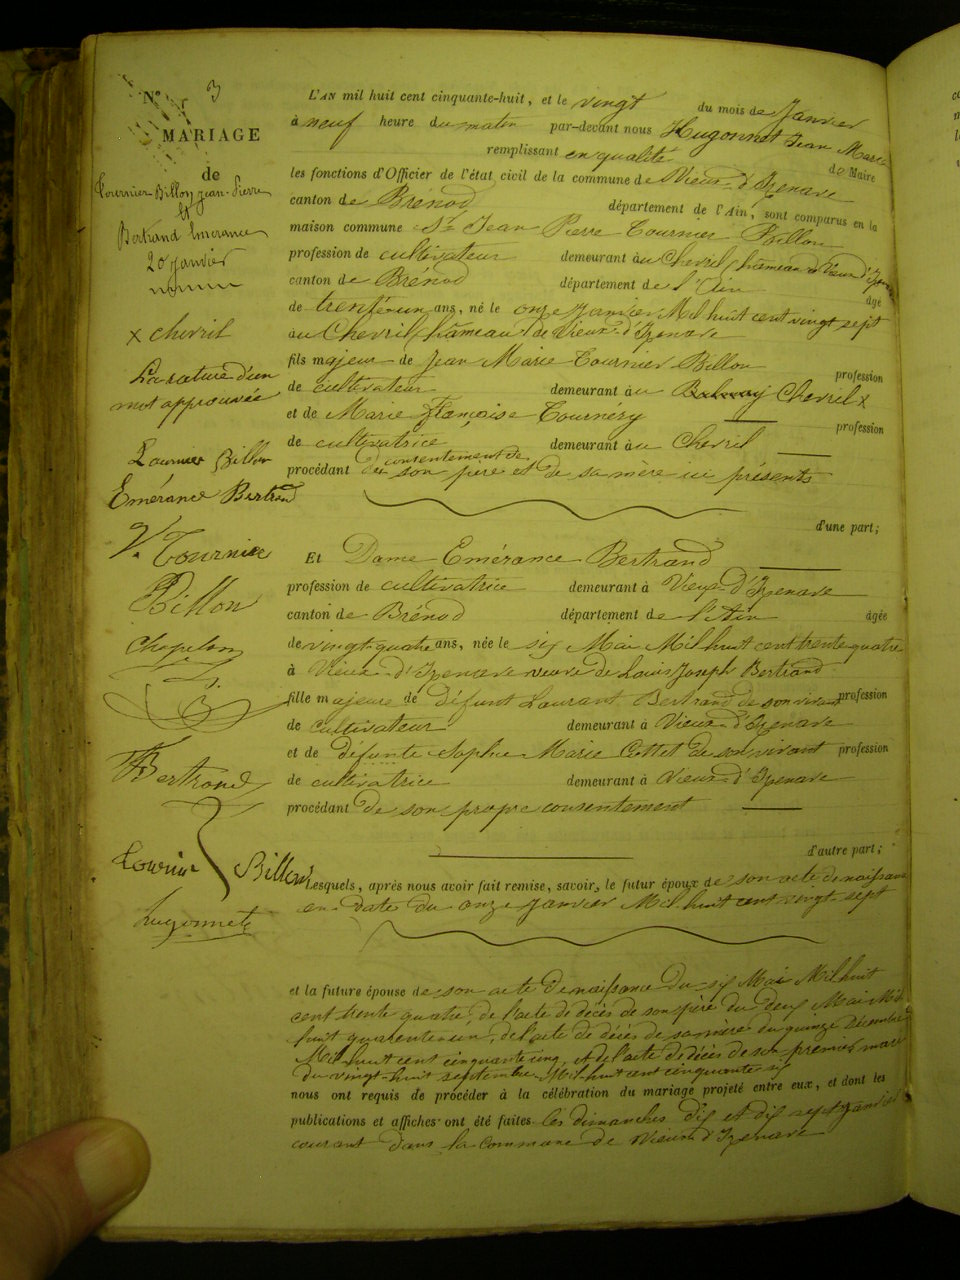 N° 3
MARIAGE
de
Tournier Billon Jean-Pierre
et
Bertrand Emérance
20 janvier
x chevril
La rature d'un
mot approuvée
Tournier Billon
Emérance Bertrand
V. Tournier
Billon
Chapelon
Bertrand
Tournier Billon
hugonnet
L'AN mil huit cent cinquante-huit, et le vingt du mois de Janvier
à neuf heure du matin par-devant nous Hugonnet Jean Marie
remplissant en qualité de Maire
les fonctions d'Officier de l'état civil de la commune de Vieux-d'Izenave
canton de Brénod département de l'Ain, sont comparus en la
maison commune Sr Jean Pierre Tournier Billon
profession de cultivateur demeurant au Chevril hameau de Vieux d'Izenave
canton de Brénod département de l'Ain âgé
de trente un ans, né le onze Janvier Mil huit cent vingt sept
au Chevril hameau de Vieux-d'Izenave
fils majeur de Jean Marie Tournier Billon profession
de cultivateur demeurant au Chevril x
et de Marie Françoise Tournery profession
de cultivatrice demeurant au Chevril
procédant du consentement de son père et de sa mère ici présents
d'une part;
Et Dame Emérance Bertrand
profession de cultivatrice demeurant à Vieux-d'Izenave
canton de Brénod département de l'Ain âgée
de vingt-quatre ans, née le six Mai Mil huit cent trente-quatre
à Vieux-d'Izenave veuve de Louis Joseph Bertrand
fille majeure de Défunt Laurent Bertrand de son vivant profession
de cultivateur demeurant à Vieux-d'Izenave
et de défunte Sophie Marie Cottet de son vivant profession
de cultivatrice demeurant à Vieux-d'Izenave
procédant de son propre consentement
d'autre part;
Lesquels, après nous avoir fait remise, savoir, le futur époux de son acte de naissance
en date du onze Janvier Mil huit cent vingt-sept
et la future épouse de son acte de naissance du six Mai Mil huit
cent trente quatre, de l'acte de décès de son père du deux Mai Mil
huit quarente un, de l'acte de décès de sa mère du quinze Décembre
Mil huit cent cinquante cinq, et de l'acte de décès de son premier mari
du vingt-huit septembre Mil huit cent cinquante six
nous ont requis de procéder à la célébration du mariage projeté entre eux, et dont les
publications et affiches ont été faites les dimanches dix et dix sept Janvier
courant dans la commune de Vieux d'Izenave